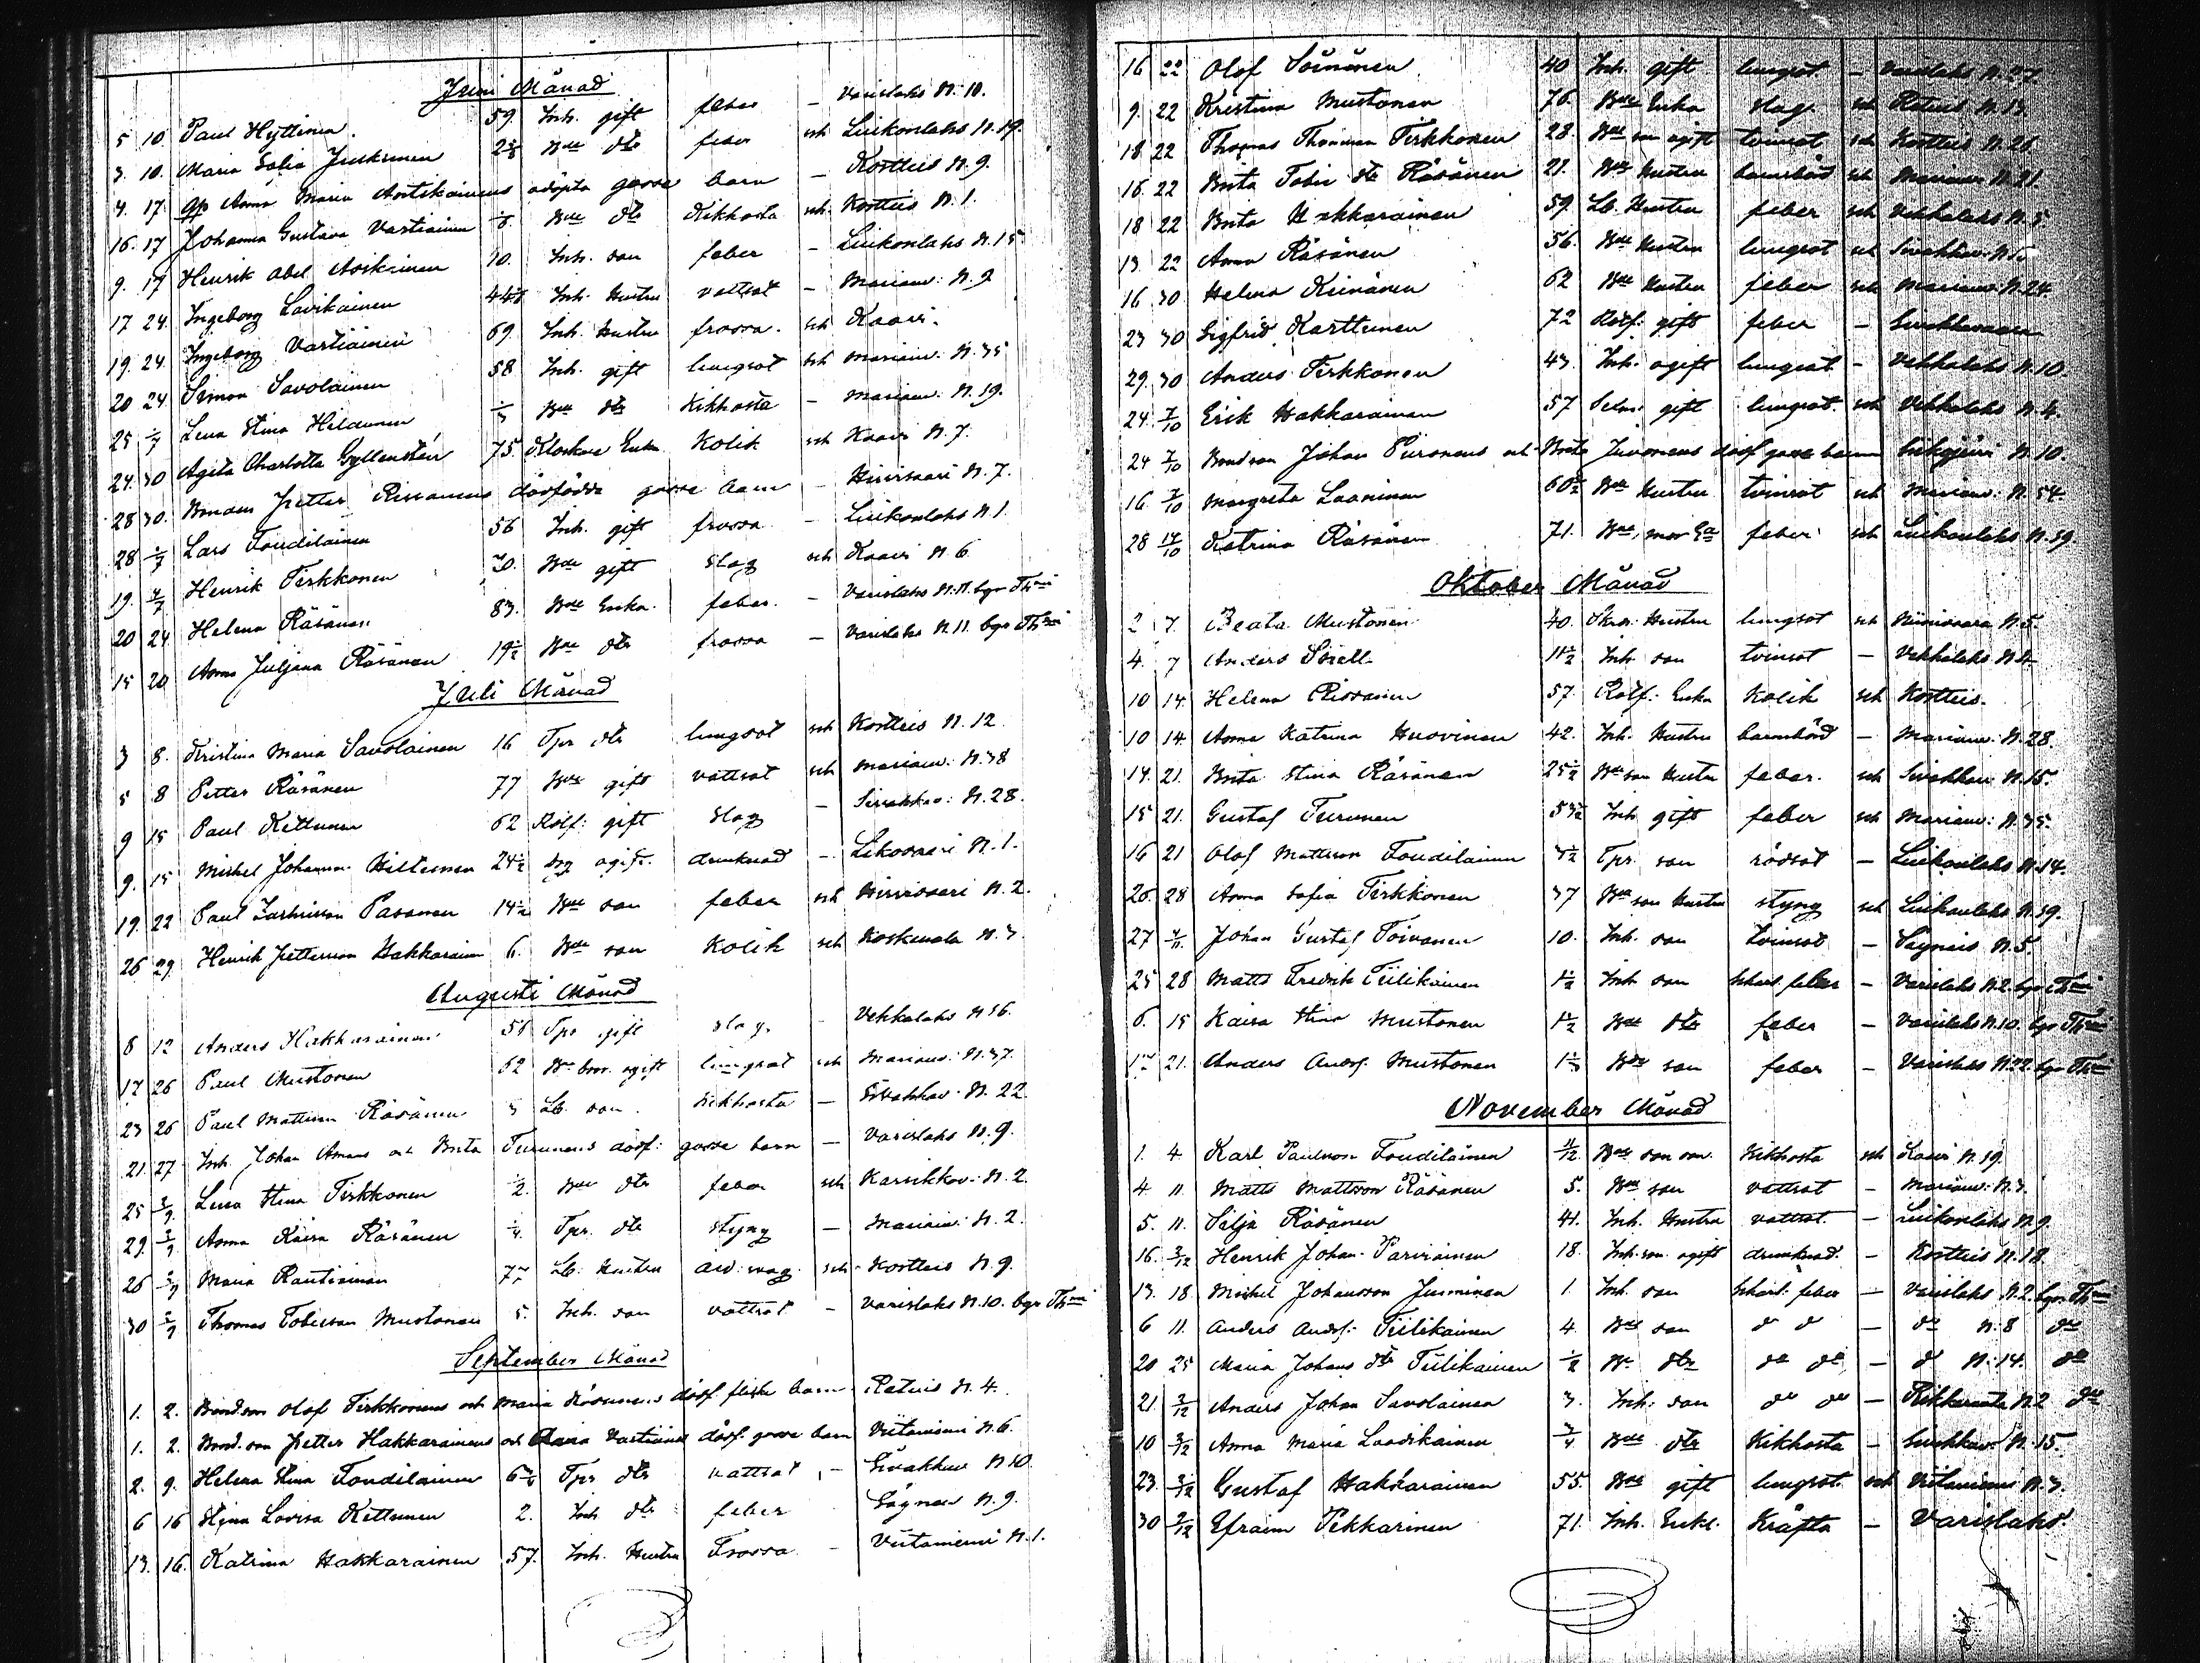 Juni Månad
5 10 Paul Hyttinen 59 Inh. gift feber - Varislaks N. 10.
3. 10. Maria Sofia Juskinen Bde dtr feber sch Luikonlaks N. 19.
4. 17. Anna Maria Asikainens odöpta gosse barn - Kortteis N. 9.
16. 17 Johanna Gustava Vartiainen Bde dtr Kikhosta sch Kortteis N. 1.
9. 17 Henrik Abel Asikainen 10. Inh. son feber - Luikonlaks N. 15
17 24. Ingeborg Lavikainen Inh. Hustru vattsot - Mariaw: N. 2
19. 24. Ingeborg Vartiainen 69. Inh. Hustru frossa. sch Kaavi.
20 24. Simon Savolainen 58 Inh. gift lungsot sch Mariaw: N. 35
25 1/7 Lena Stina Hildunen Bde dtr Kikhosta - Mariaw. N. 19.
24. 30 Agata Charlotta Gyllenstén 75. Klockare Enka Kolik sch Kaavi N. 7.
28 30. Bondens Petter Rissanens dödfödda gosse barn - Hirvisaari N. 7.
28 1/7 Lars Toudilainen 56 Inh. gift frossa - Luikonlaks N. 1
19. 4/7 Henrik Tirkkonen 30. Bde gift Slag sch Kaavi N. 6
20 24 Helena Räsänen 83. Bde Enka. feber. - Varislaks N. 11. bgr Thmi
15 20 Anna Juljana Räsänen 19½ Bde dtr frossa - Varislaks N. 11. bgr Thmi
Juli Månad
3 8. Kristina Maria Savolainen 16 Tpr dtr lungsot sch Kortteis N. 12
5 8 Petter Räsänen 77 Bde gift vattsot sch Mariaw: N. 38
9 15 Paul Kettunen 62 Rotf: gift Slag - Sivakkav: N. 28.
9. 15 Michel Johansson Hiltunen 24½ ogift. drunknad - Likovaari N. 1.
19. 22 Paul Zachrisson Pasanen 14½ Bde son feber sch Hirvisaari N. 2.
26 29. Henrik Pettersson Hakkarainen 6. Bde son Kolik sch Koskenala N. 3.
Augusti Månad
8 12 Anders Hakkarainen 51 Tpr gift Slag. Vehkalaks N. 16.
17 26 Paul Mustonen 62 Bde bror. ogift lungsot sch Mariaw: N. 37.
23 26 Paul Mattsson Räsänen Lb. son. Kikhosta - Sivakkav. N. 22.
21. 27 Inh. Johan Amans och Brita Turunens dödf: gosse barn - Varislaks N. 9.
25 2/9 Lena Stina Tirkkonen ½. Bde dtr feber sch Karsikkov: N. 2.
29. 2/9 Anna Kaisa Räsänen ¼. Tpr. dtr styng - Mariaw: N. 2.
26 Maria Rautiainen Lb. Hustru sch Kortteis N. 9.
30 2/9 Thomas Tobiesson Mustonen 5. Inh. son vattsot - Varislaks N. 10. bgr Thmi
September Månad
1. 2. Bond.son Olof Tirkkonens och Maria Räsänens dödf. flicke barn Ratuis N. 4.
1. 2. Bond.son Petter Hakkarainens och Vartiainens dödf. gosse barn Viitaniemi N. 6.
2. 9. Helena Stina Toudilainen Tpr dtr vattsot - Sivakkav N. 10.
6 16 Stina Lovisa Kettunen 2. Inh dtr feber Säyneis N. 9.
13. 16. Katrina Hakkarainen 57. Inh. Hustru Frossa - Viitaniemi N. 1.
16 22 Olof Soinonen 40 Inh. gift lungsot - Varislaks N. 27
9. 22 Kristina Mustonen 76. Bde Enka slag. sch Ratuis N. 13
18 22 Thomas Thomasson Tirkkonen 28. Bde son ogift tvinsot sch Kortteis N. 26
16. 22 Brita Tobies dtr Räsänen 21. Bde Hustru barnsbörd sch Mariaw N. 21.
18 22 Brita Hakkarainen 59. Lb. Hustru feber sch Vehkalaks N. 5.
13 22 Anna Räsänen 56. Bde Hustru lungsot sch Sivakkav: N. 5.
16 30 Helena Keinänen 62 Bde Hustru feber sch Mariaw: N. 24.
23 30 Sigfrid Karttunen 72 Rotf: gift feber - Sivakkavaara
29. 30 Anders Tirkkonen 43. Inh. ogift lungsot - Vehkalaks N. 10.
24. 7/10 Erik Hakkarainen 57 gift lungsot. sch Vehkalaks N. 4.
24 7/10 Bondson Johan Piironens och Brita Juvonens dödf gosse barn N. 10.
16 7/10 Margreta Laaninen Bde Hustru tvinsot sch Mariaw: N. 54.
28 14/10 Katrina Räsänen 71. Bde, mor feber sch Luikonlaks N. 39.
Oktober Månad
2 7. Beata Mustonen 40. Hustru lungsot sch Niinivaara N. 5.
4. 7 Anders 11½ Inh son tvinsot - Vehkalaks N. 4
10 14. Helena Rissanen 57. Rotf: Enka Kolik sch Kortteis.
10 14. Anna Katrina Huovinen 42. Inh. Hustru barnsbörd - Mariaw: N. 28.
14. 21. Brita Stina Räsänen 25½ Bde son Hustru feber. sch Sivakkav N. 15.
15 21. Gustaf Turunen 53½ Inh gift feber sch Mariaw: N. 35.
16 21 Olof Mattsson Toudilainen 3½ Tpr. son rödsot - Luikonlaks N. 14.
20. 28 Anna Sofia Tirkkonen 37 Bde son Hustru styng sch Luikonlaks N. 39.
27 4/11. Johan Gustaf Toivanen 10. Inh. son tvinsot - Säyneis N. 5.
25 28 Matts Fredrik Tiilikainen 1½ Inh son schart feber - Varislaks N. 2. bgr Thmi
6. 15 Kaisa Stina Mustonen 1½ Bde dtr feber - Varislaks N. 10. bgr Thmi
21. Anders Andsf. Mustonen Bde son feber - Varislaks N. 22. bgr Thmi
November Månad
1. 4. Karl Paulsson Toudilainen 11/12. Bde son son. Kikhosta sch Kaavi N. 19.
4 11. Matts Mattsson Räsänen 5. Bde son vattsot - Mariaw: N. 3.
5. 11. Silja Räsänen 41. Inh. Hustru vattsot. - Luikonlaks N. 9.
16. 2/12 Henrik Johan Parviainen 18. Inh. son. ogift drunknad. - Kortteis N. 18.
13. 18. Michel Johansson Jumminen 1. Inh. son schart: feber - Varislaks N. 2. bgr. Thmi
6 11. Anders Andsf: Tiilikainen 4. Bde son do do - do N. 8 do
20 25 Maria Johans dtr Tiilikainen ½ Bde dtr do do - do N. 14. do
21. 2/12 Anders Johan Savolainen 3. Inh. son do do - Rikkaranta N. 2 do
10 2/12 Anna Maria Laasikainen ¾ Bde dtr Kikhosta - Sivakkav. N. 15.
23. 2/12 Gustaf Hakkarainen 55. Bde gift lungsot sch Viitaniemi N. 3.
30 2/12 Efraim Pekkarinen 71. Inh. Enkl. Kräfta - Varislaks.